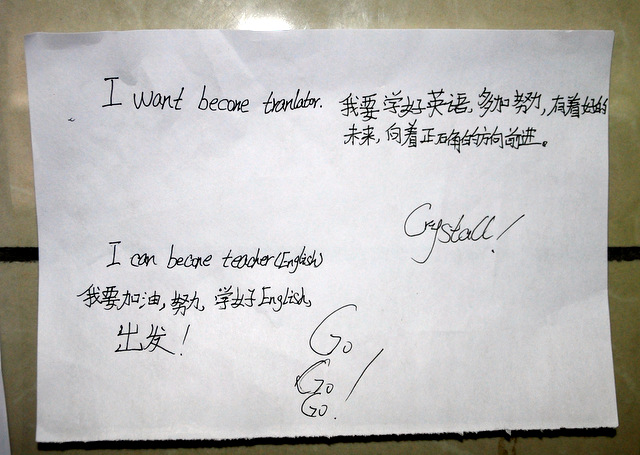 I want become tranlator. 我要学好英语,多加努力,有着好的
未来,向着正确的方向前进。
Crystall!
I can become teacher(English)
我要加油,努力,学好English,
出发!
Go
Go!
Go.